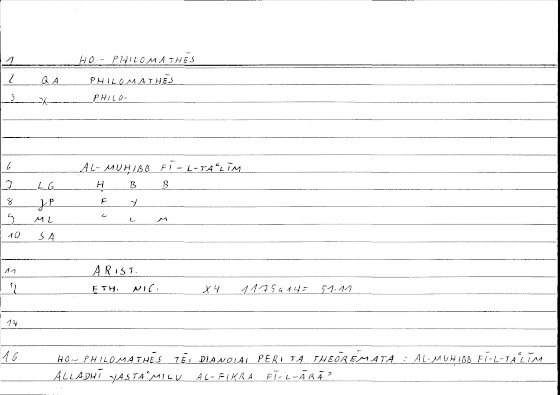 1 HO-PHILOMATHĒS
2 QA PHILOMATHĒS
3 X PHILO-
6 AL-MUḤIBB FĪ-L-TAʿLĪM
7 LG Ḥ B B
8 JP F Y
9 ML ʿ L M
10 SA
11 ARIST.
12 ETH. NIC. X4 1175a14= 51.11
14
16 HO-PHILOMATHĒS TĒI DIANOIAI PERI TA THEŌRĒMATA = AL-MUḤIBB FĪ-L-TAʿLĪM
ALLADHĪ YASTAʿMILU AL-FIKRA FĪ-L-ĀRĀʾ